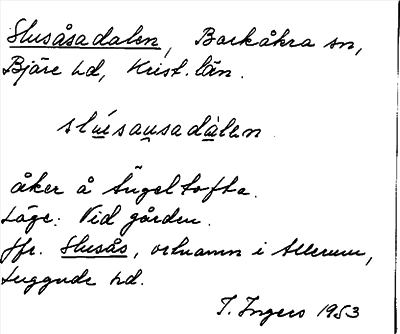 Slusåsadalen, Barkåkra sn,
Bjäre hd, Krist. län.
slúesau̯sadàlen
åker å Ängeltofta.
Läge: Vid gården.
Jfr. Slusås, ortnamn i Allerum,
Luggude hd.
I. Ingers 1953